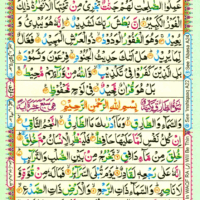 عَمِلُوا الصّٰلِحٰتِ لَهُمْ جَنّٰتٌ تَجْرِيْ مِنْ تَحْتِهَا الْاَنْهٰرُ ذٰلِكَ
الْفَوْزُ الْكَبِيْرُ اِنَّ بَطْشَ رَبِّكَ لَشَدِيْدٌ اِنَّهٗ هُوَ يُبْدِئُ وَ
يُعِيْدُ وَهُوَ الْغَفُوْرُ الْوَدُوْدُ ذُو الْعَرْشِ الْمَجِيْدُ فَعَّالٌ
لِّمَا يُرِيْدُ هَلْ اَتٰىكَ حَدِيْثُ الْجُنُوْدِ فِرْعَوْنَ وَثَمُوْدَ
بَلِ الَّذِيْنَ كَفَرُوْا فِيْ تَكْذِيْبٍ وَّاللّٰهُ مِنْ وَّرَآئِهِمْ مُّحِيْطٌ
بَلْ هُوَ قُرْاٰنٌ مَّجِيْدٌ فِيْ لَوْحٍ مَّحْفُوْظٍ
بِسْمِ اللّٰهِ الرَّحْمٰنِ الرَّحِيْمِ
وَالسَّمَآءِ وَالطَّارِقِ وَمَآ اَدْرٰىكَ مَا الطَّارِقُ النَّجْمُ الثَّاقِبُ
اِنْ كُلُّ نَفْسٍ لَّمَّا عَلَيْهَا حَافِظٌ فَلْيَنْظُرِ الْاِنْسَانُ مِمَّ خُلِقَ
خُلِقَ مِنْ مَّآءٍ دَافِقٍ يَّخْرُجُ مِنْ بَيْنِ الصُّلْبِ وَالتَّرَآئِبِ
اِنَّهٗ عَلٰى رَجْعِهٖ لَقَادِرٌ يَوْمَ تُبْلَى السَّرَآئِرُ فَمَا لَهٗ مِنْ قُوَّةٍ
وَّلَا نَاصِرٍ وَالسَّمَآءِ ذَاتِ الرَّجْعِ وَالْاَرْضِ ذَاتِ الصَّدْعِ